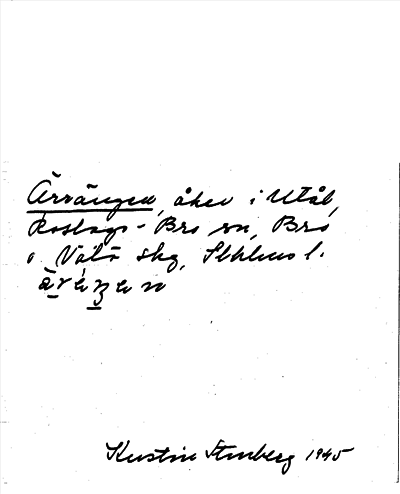 Ärrängen, åker i Utål,
Roslags-Bro sn, Bro
o Vätö skg, Sthlms l.
Kerstin Stenberg 1945